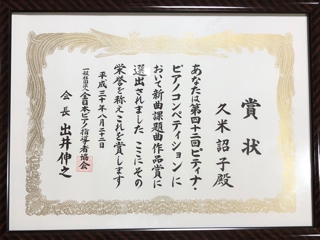 賞状
久米詔子殿
あなたは第四十二回ピティナ・
ピアノコンペティションに
おいて新曲課題曲作品賞に
選出されました ここにその
栄誉を称えこれを賞します
平成三十年八月二十二日
一般社団法人全日本ピアノ指導者協会
会長 出井伸之